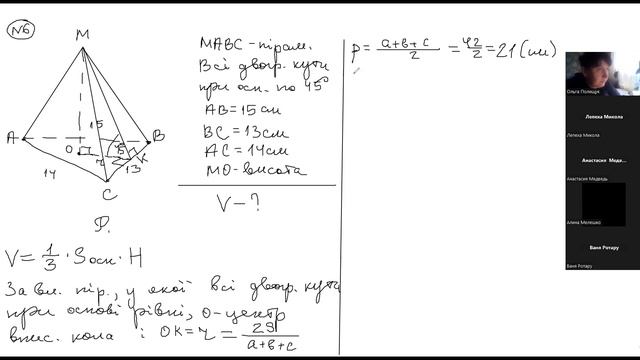 N6
M
A
B
C
O
K
15
45°
r
13
14
MABC - пірам.
Всі двогр. кути
при осн. по 45°
AB = 15 см
BC = 13 см
AC = 14 см
MO - висота
V - ?
Р.
V = 1/3 · Sосн · H
За вл. пір., у якої всі двогр. кути
при основі рівні, O - центр
впис. кола і OK = r = 2S/(a+b+c)
p = (a+b+c)/2 = 42/2 = 21 (см)
Ольга Полещук
Лепеха Микола
Лепеха Микола
Анастасия Медве...
Анастасия Медведь
Алина Мелешко
Ваня Ротару
Ваня Ротару